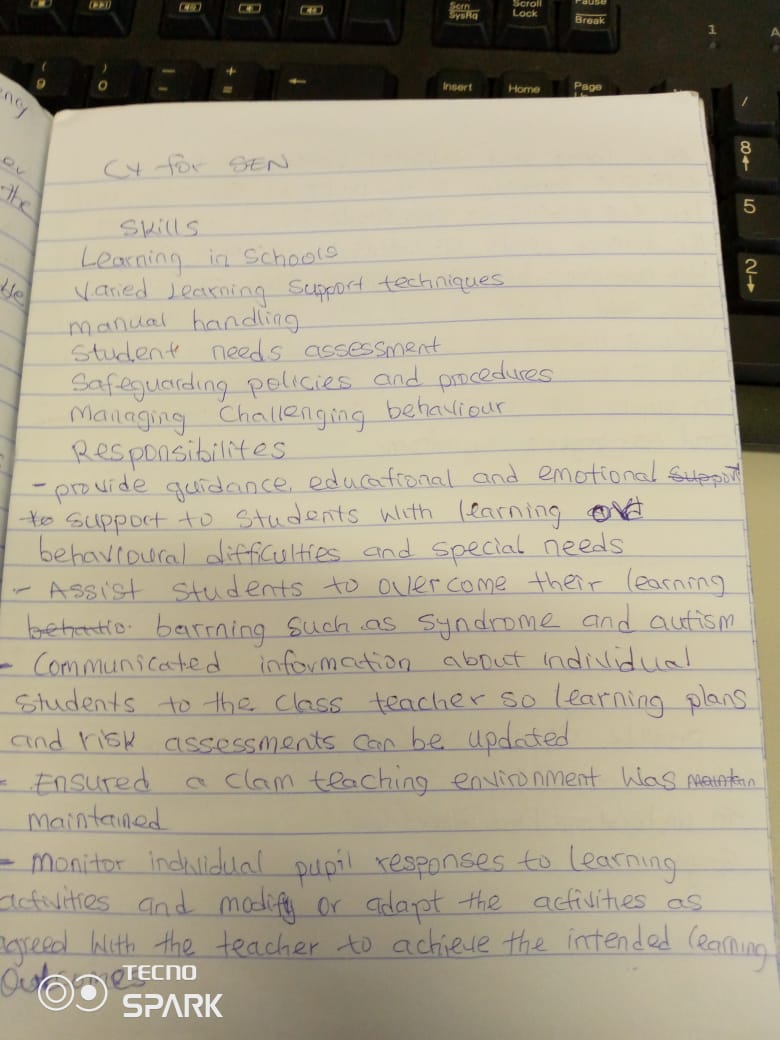 Scrn
SysRq
Scroll
Lock
Pause
Break
1
A
(
9
)
0
-
+
=
Insert
Home
Page
/
8
5
2
the
CV for SEN
Skills
Learning in schools
Varied Learning Support techniques
manual handling
Student needs assessment
Safeguarding policies and procedures
Managing Challenging behaviour
Responsibilites
- provide guidance, educational and emotional support
to support to students with learning
behavioural difficulties and special needs
- Assist students to overcome their learning
behatio. barrning such as syndrome and autism
- Communicated information about individual
students to the class teacher so learning plans
and risk assessments can be updated
- Ensured a clam teaching environment was maintan
maintained
- monitor individual pupil responses to learning
activities and modify or adapt the activities as
agreed with the teacher to achieve the intended learning
Outcomes
TECNO
SPARK